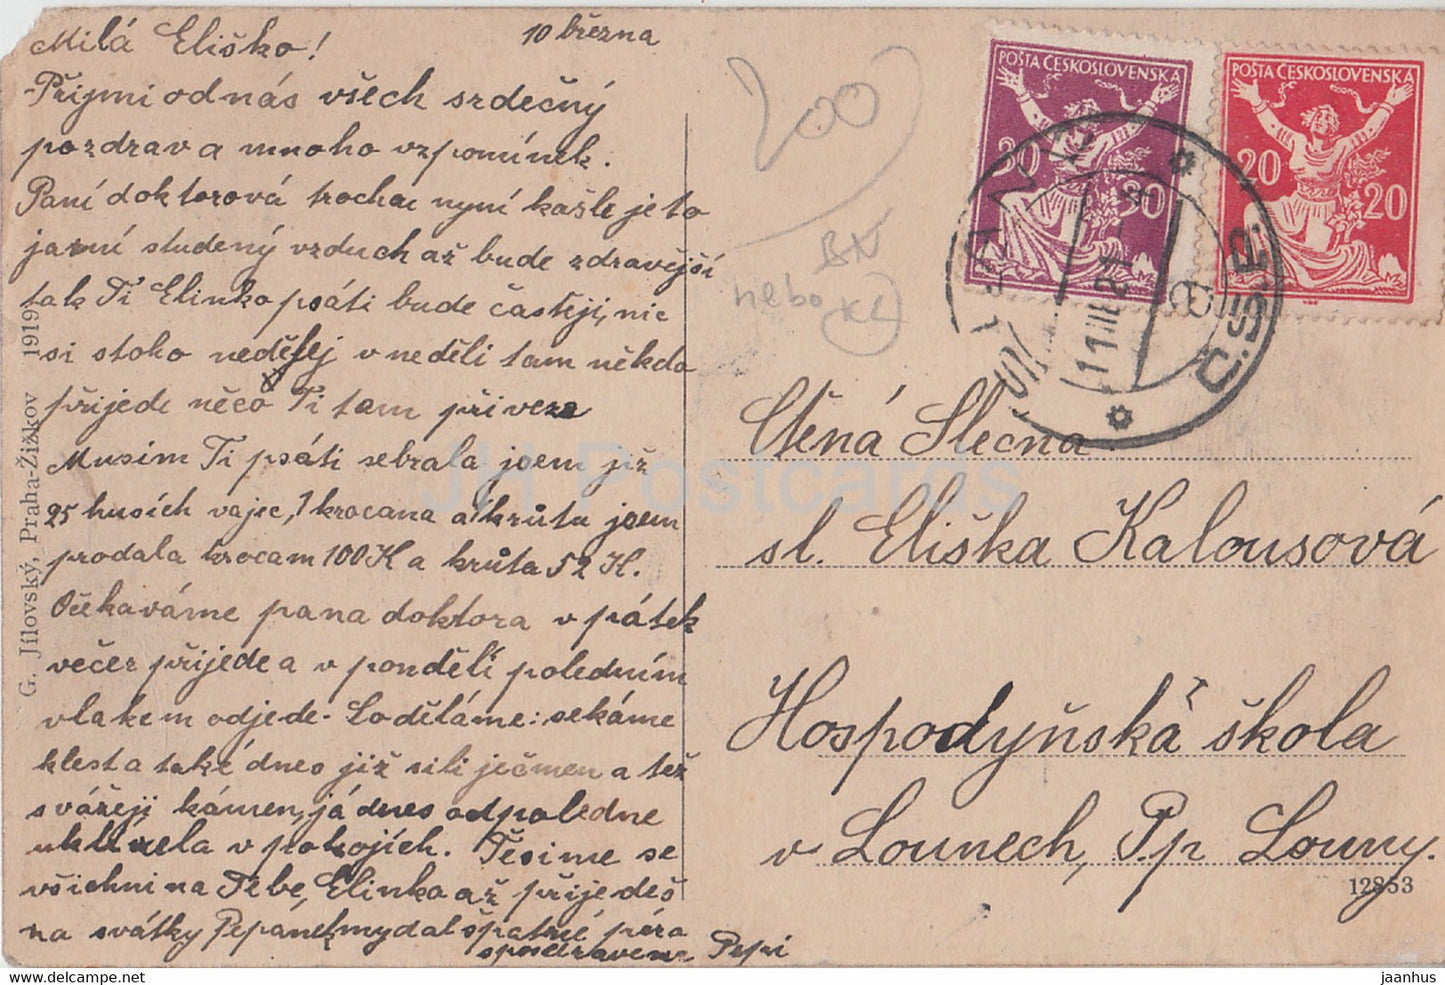 Milá Eliško!
10 března
Přijmi od nás všech srdečný
pozdrav a mnoho vzpomínek.
Paní doktorová trochu nyní kašle je to
jarní studený vzduch až bude zdravější
tak Ti Elinko psáti bude častěji, nic
si z toho nedělej v neděli tam někdo
přijede něco Ti tam přiveze
Musím Ti psáti sebrala jsem již
25 husích vajec, 1 krocana a krůtu jsem
prodala krocan 100 K a krůta 52 K.
Očekáváme pana doktora v pátek
večer přijede a v pondělí poledním
vlakem odjede. Co děláme: sekáme
klest a také dnes již sili ječmen a též
svážeji kámen, já dnes odpoledne
uklízela v pokojích. Těšíme se
všichni na Tebe, Elinko až přijedeš
na svátky Pepánek mydal špatné péra
s pozdravem Pepi
G. Jílovský, Praha-Žižkov 1919
200
BN
nebo
KL
POŠTA ČESKOSLOVENSKÁ
30 30
POŠTA ČESKOSLOVENSKÁ
20 20
11.III.21
Č.S.P.
Ctěná Slečna
sl. Eliška Kalousová
Hospodyňská škola
v Lounech, P.p. Louny.
12853
JH Postcards
www.delcampe.net
jaanhus